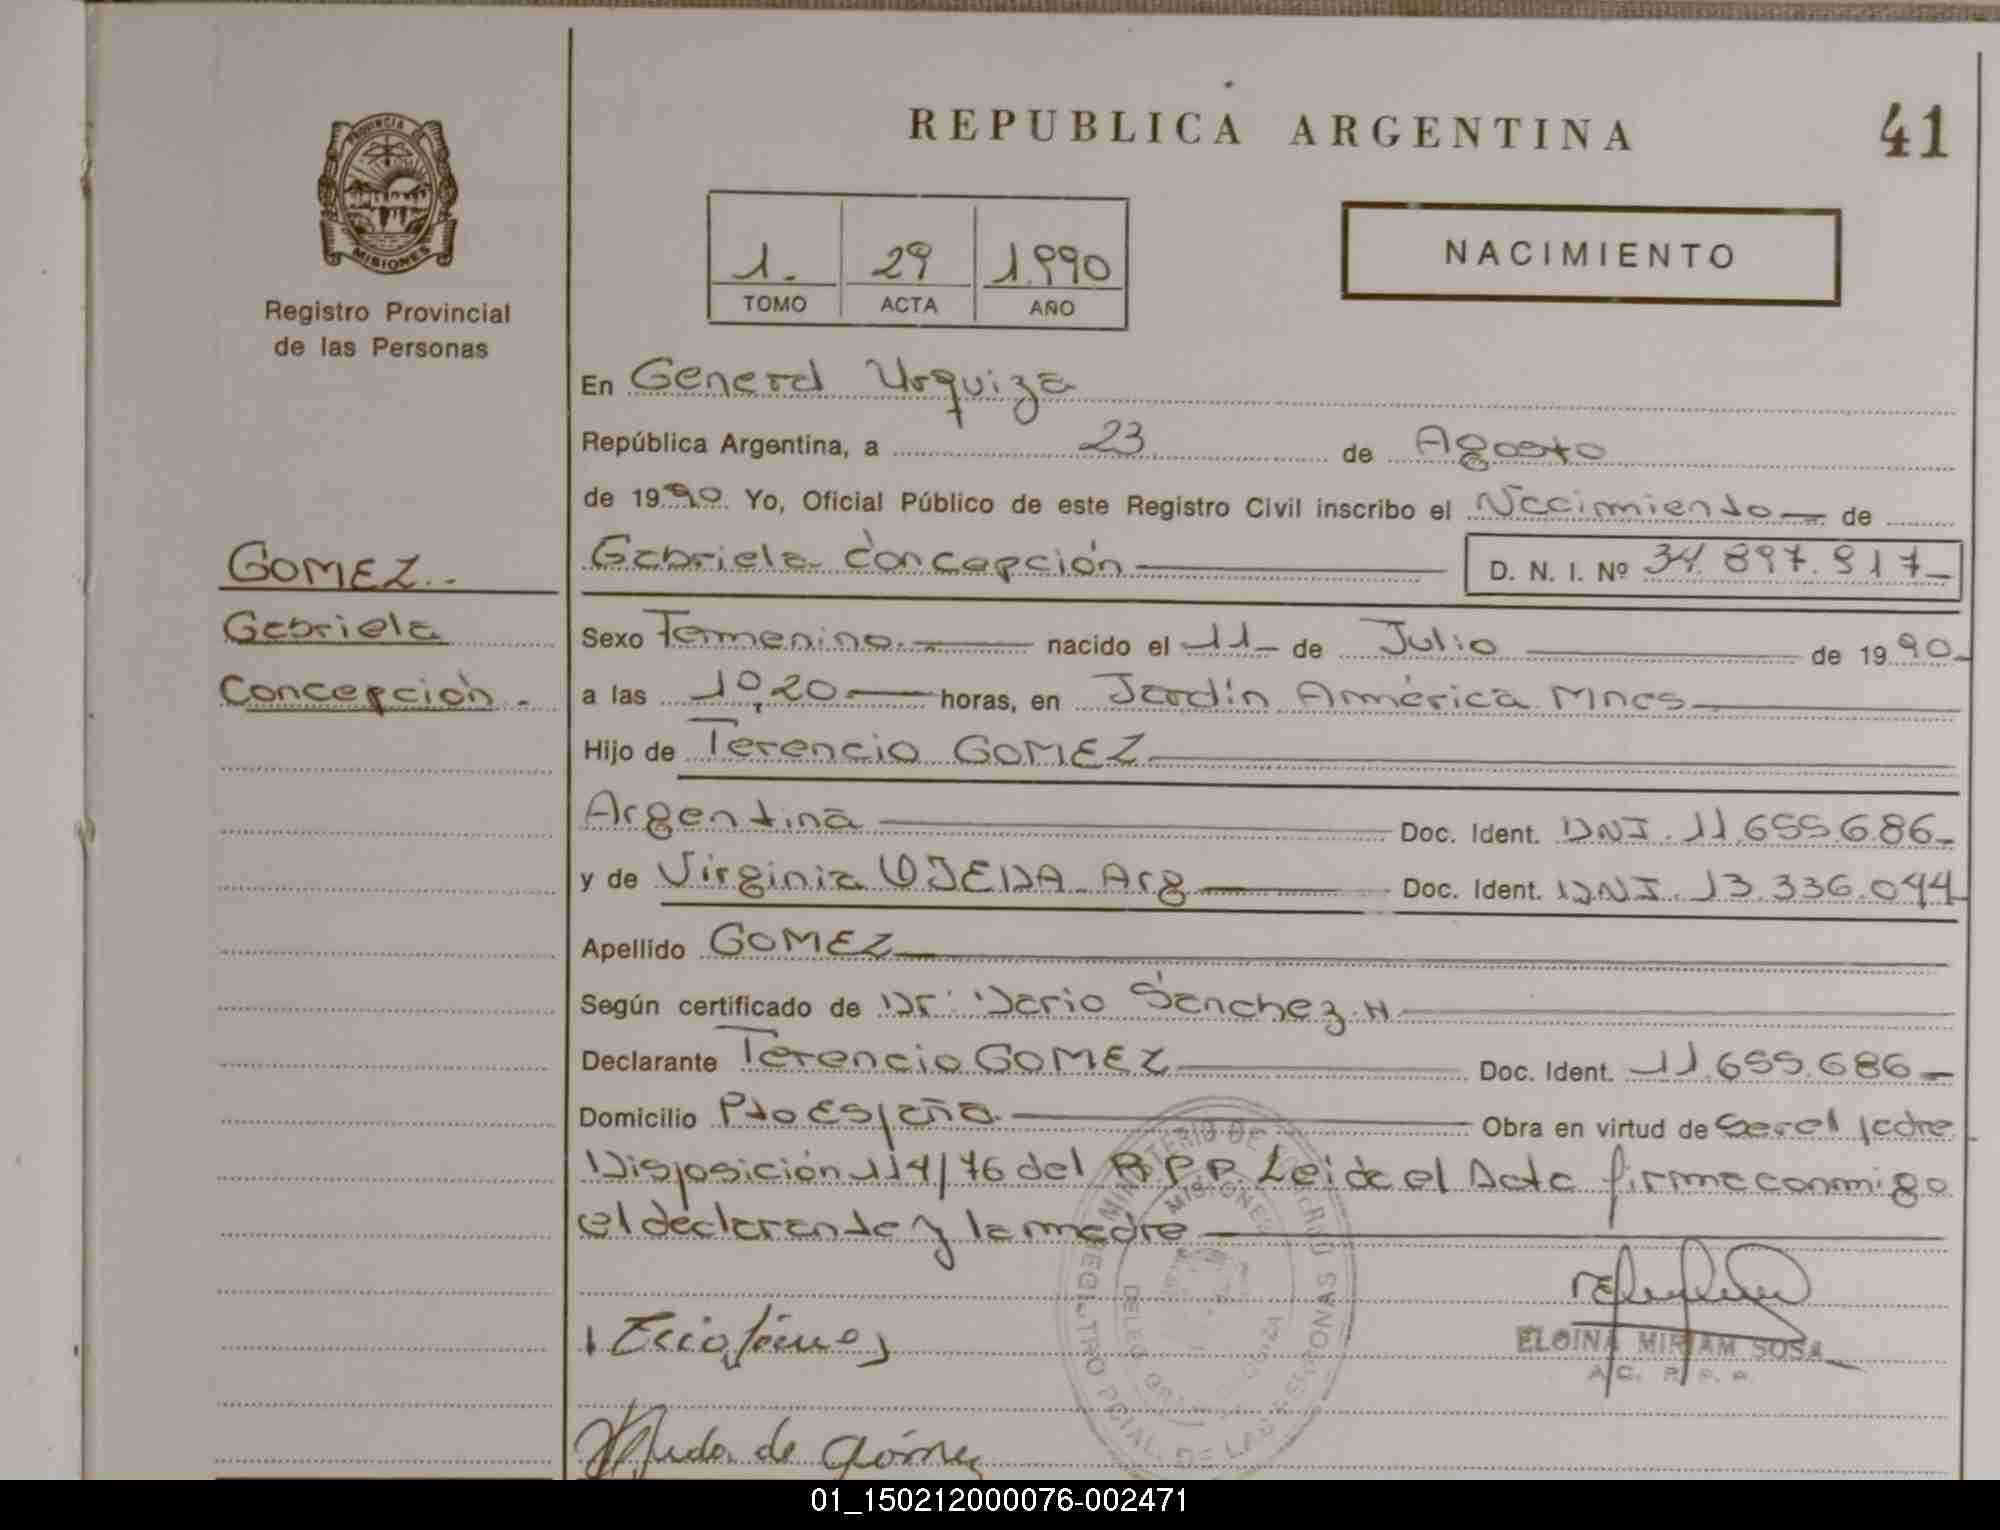 PROVINCIA DE
MISIONES
Registro Provincial
de las Personas
GOMEZ.-
Gabriela
Concepción.-
REPUBLICA ARGENTINA
41
1.- 29 1.990
TOMO ACTA AÑO
NACIMIENTO
En General Urquiza
República Argentina, a 23 de Agosto
de 1990. Yo, Oficial Público de este Registro Civil inscribo el Nacimiento de
Gabriela Concepción D. N. I. Nº 34.897.917-
Sexo Femenino.- nacido el 11- de Julio de 1990-
a las 10,20 horas, en Jardín América Mnes
Hijo de Terencio GOMEZ
Argentina Doc. Ident. DNI. 11.655.686-
y de Virginia OJEDA Arg Doc. Ident. DNI. 13.336.044-
Apellido GOMEZ
Según certificado de Dr. Dario Sánchez.H
Declarante Terencio GOMEZ Doc. Ident. 11.655.686-
Domicilio Pto España Obra en virtud de ser el padre
Disposición 114/76 del R.P.P. Leida el Acta firma conmigo
el declarante y la madre
MINISTERIO DE GOBIERNO
MISIONES
REGISTRO PCIAL. DE LAS PERSONAS
ELOINA MIRIAM SOSA
A/C. R. P. P.
de Gómez
01_150212000076-002471